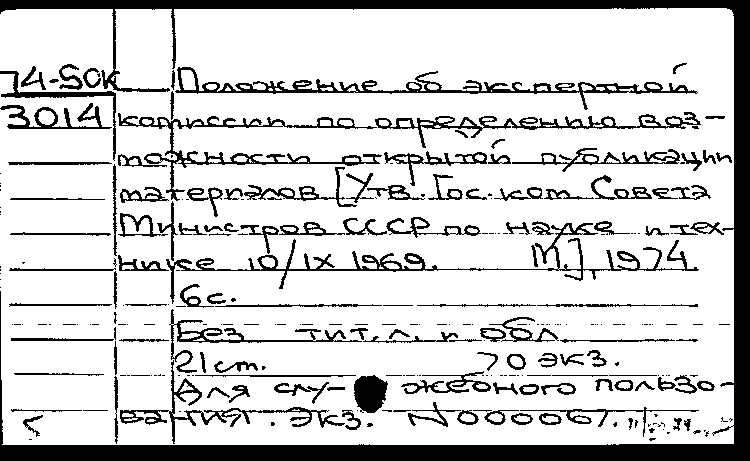 74-5ОК Положение об экспертной
3014 комиссии по определению воз-
можности открытой публикации
материалов [Утв. Гос. ком Совета
Министров СССР по науке и тех-
нике 10/IX 1969. М.], 1974
6 с.
Без тит. л. и обл.
21 ст. 70 экз.
Для слу- жебного пользо-
вания. Экз. N 000067.